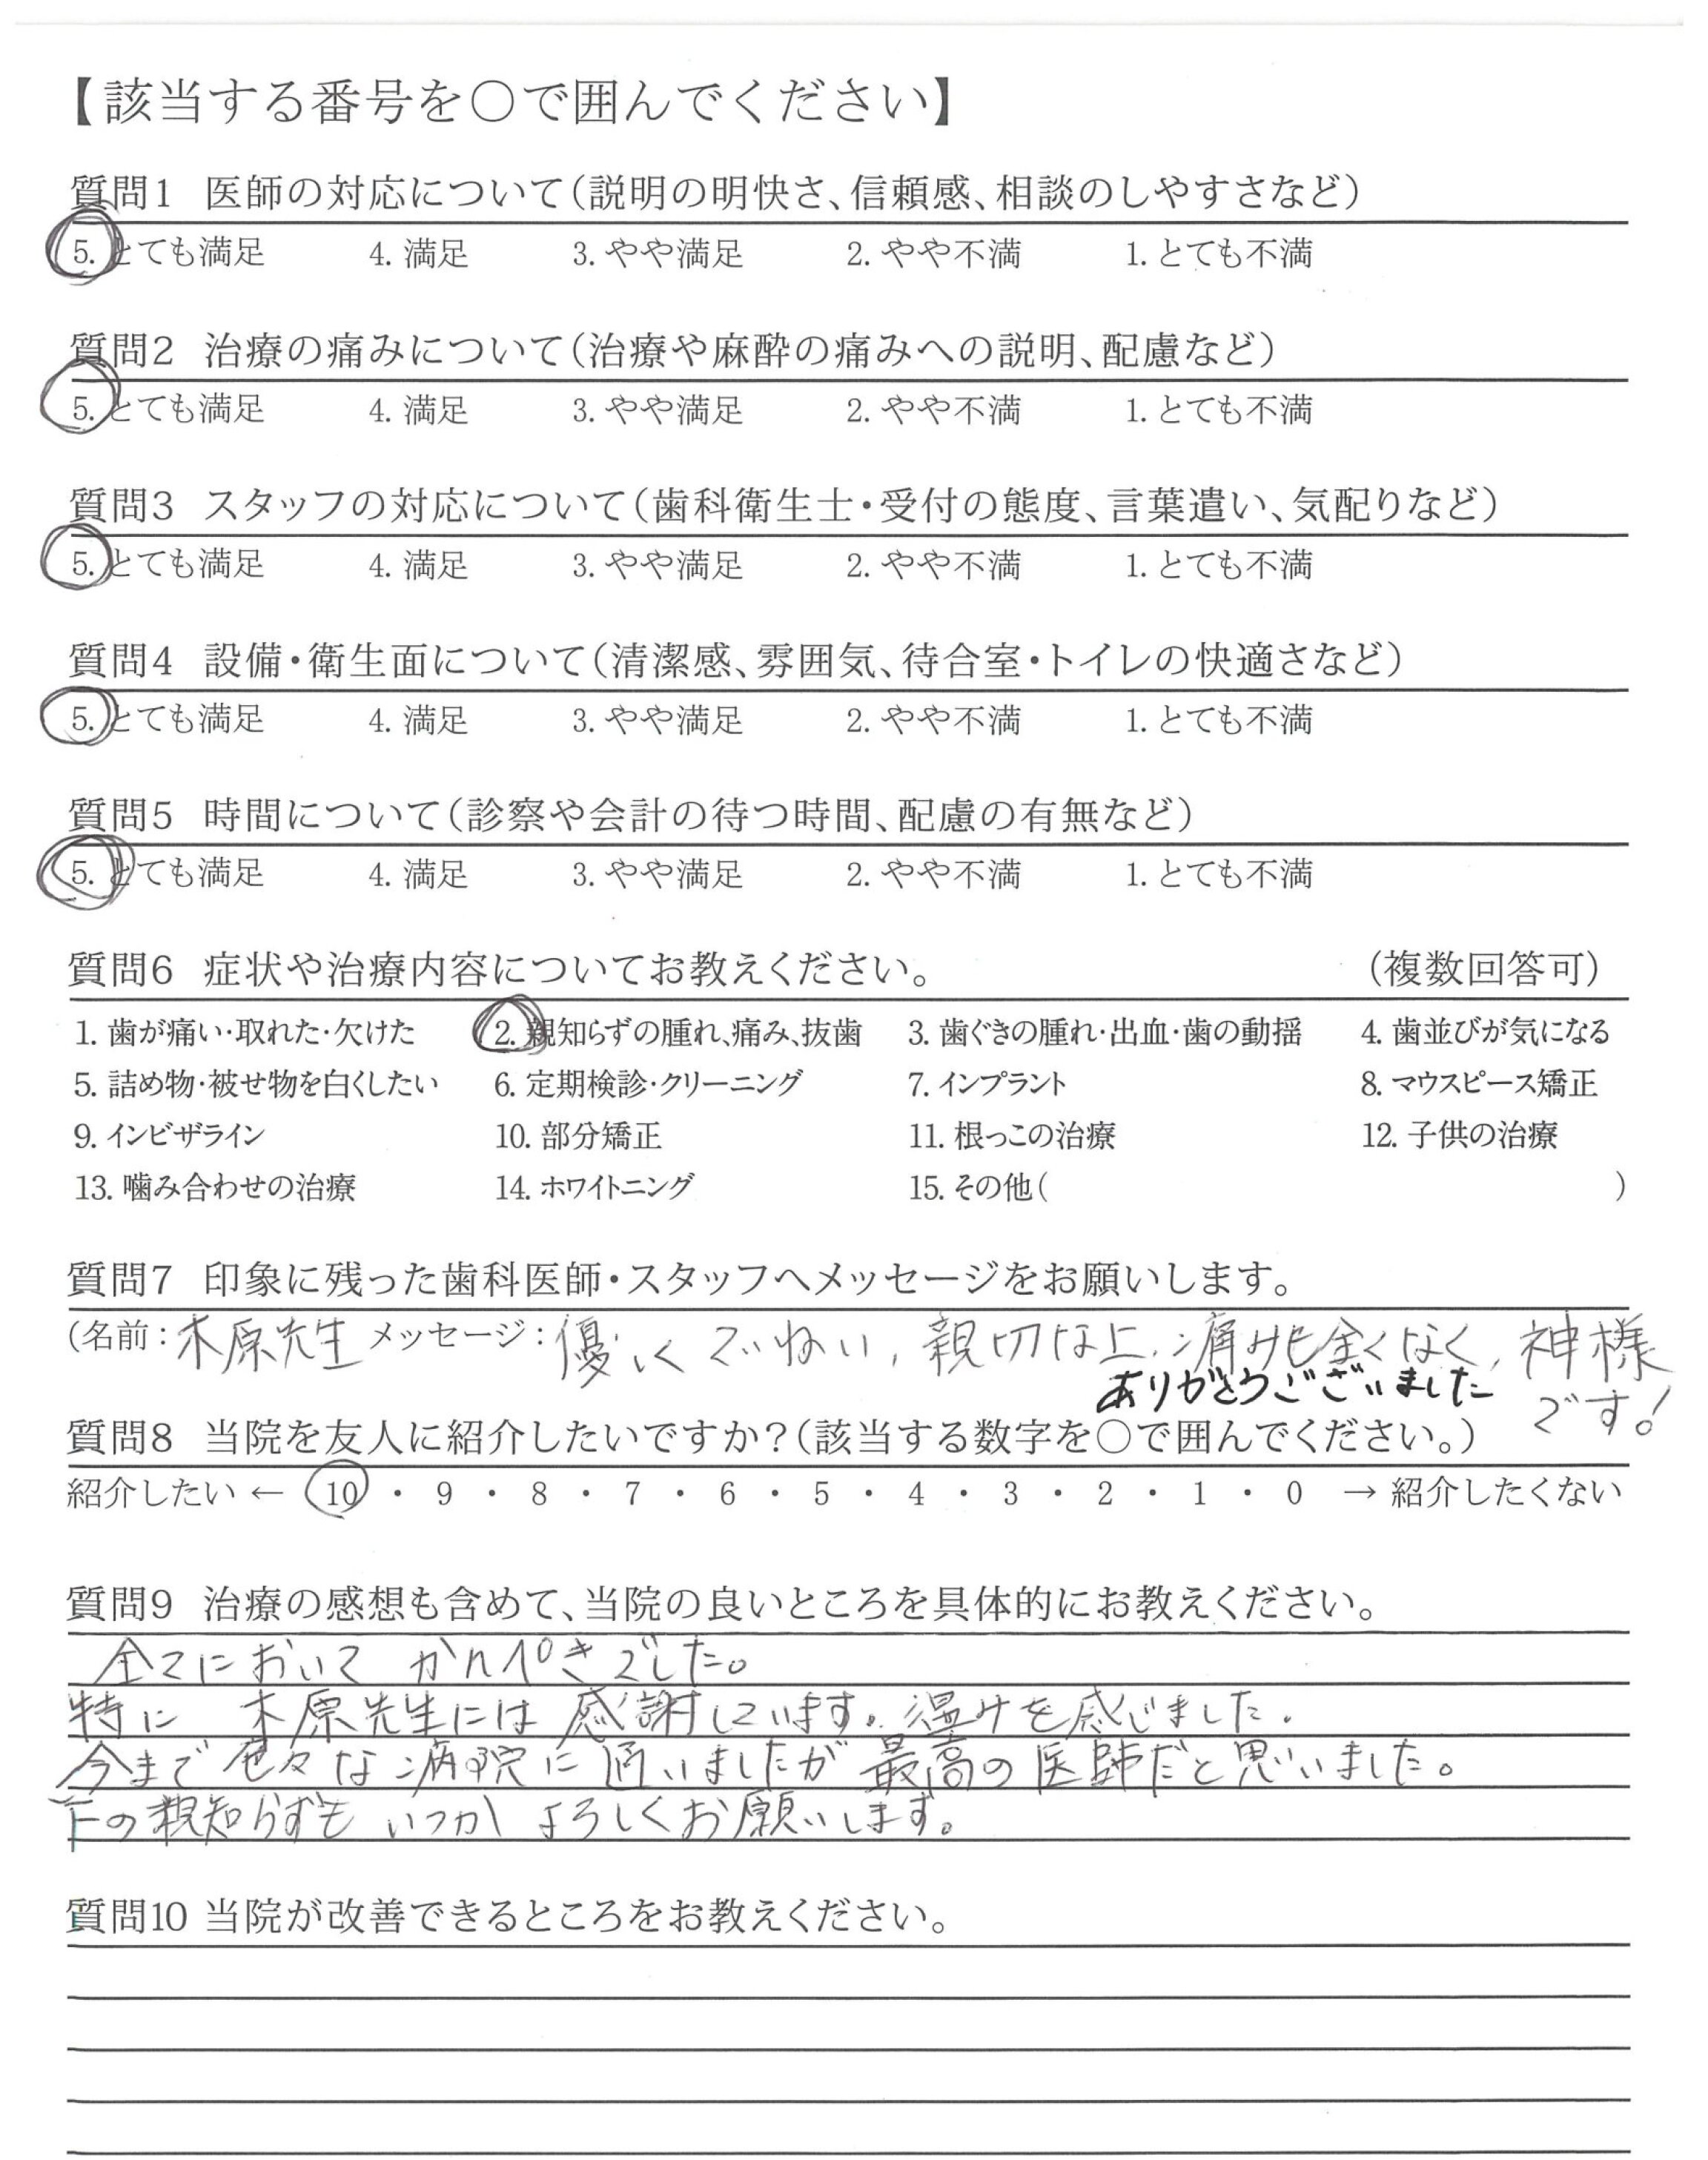 【該当する番号を○で囲んでください】
質問1 医師の対応について(説明の明快さ、信頼感、相談のしやすさなど)
5. とても満足 4. 満足 3. やや満足 2. やや不満 1. とても不満
質問2 治療の痛みについて(治療や麻酔の痛みへの説明、配慮など)
5. とても満足 4. 満足 3. やや満足 2. やや不満 1. とても不満
質問3 スタッフの対応について(歯科衛生士・受付の態度、言葉遣い、気配りなど)
5. とても満足 4. 満足 3. やや満足 2. やや不満 1. とても不満
質問4 設備・衛生面について(清潔感、雰囲気、待合室・トイレの快適さなど)
5. とても満足 4. 満足 3. やや満足 2. やや不満 1. とても不満
質問5 時間について(診察や会計の待つ時間、配慮の有無など)
5. とても満足 4. 満足 3. やや満足 2. やや不満 1. とても不満
質問6 症状や治療内容についてお教えください。 (複数回答可)
1. 歯が痛い・取れた・欠けた 2. 親知らずの腫れ、痛み、抜歯 3. 歯ぐきの腫れ・出血・歯の動揺 4. 歯並びが気になる
5. 詰め物・被せ物を白くしたい 6. 定期検診・クリーニング 7. インプラント 8. マウスピース矯正
9. インビザライン 10. 部分矯正 11. 根っこの治療 12. 子供の治療
13. 噛み合わせの治療 14. ホワイトニング 15. その他( )
質問7 印象に残った歯科医師・スタッフへメッセージをお願いします。
(名前:木原先生 メッセージ:優しくていねい、親切な上、痛みも全くなく、神様
です!
ありがとうございました
質問8 当院を友人に紹介したいですか?(該当する数字を○で囲んでください。)
紹介したい ← 10 ・ 9 ・ 8 ・ 7 ・ 6 ・ 5 ・ 4 ・ 3 ・ 2 ・ 1 ・ 0 → 紹介したくない
質問9 治療の感想も含めて、当院の良いところを具体的にお教えください。
全てにおいて かんぺきでした。
特に 木原先生には感謝しています。温みを感じました。
今まで色々な病院に通いましたが最高の医師だと思いました。
下の親知らずも いつか よろしくお願いします。
質問10 当院が改善できるところをお教えください。